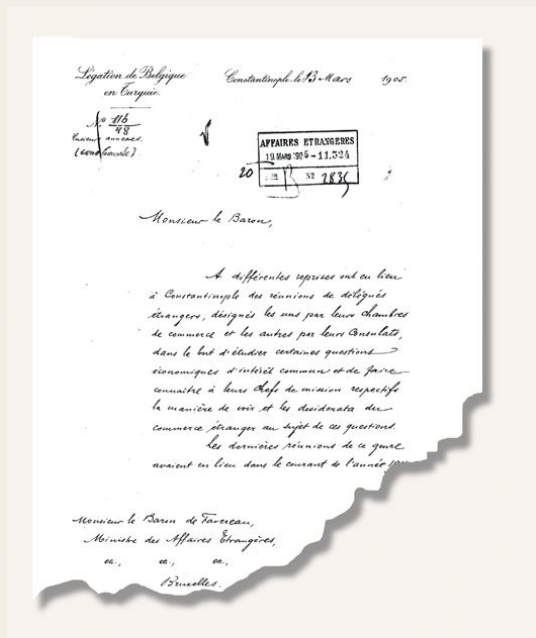 Légation de Belgique
en Turquie.
Constantinople, le 13 Mars 1905.
No 116
48
annexes.
AFFAIRES ETRANGERES
19 MARS 1905 - 11.324
20
No 2835
Monsieur le Baron,
A différentes reprises ont eu lieu
à Constantinople des réunions de délégués
étrangers, désignés les uns par leurs chambres
de commerce et les autres par leurs Consulats,
dans le but d'étudier certaines questions
économiques d'intérêt commun et de faire
connaître à leurs Chefs de mission respectifs
la manière de voir et les desiderata du
commerce étranger au sujet de ces questions.
Les dernières réunions de ce genre
avaient eu lieu dans le courant de l'année
Monsieur le Baron de Favereau,
Ministre des Affaires Etrangères,
ea., ea., ea.,
Bruxelles.